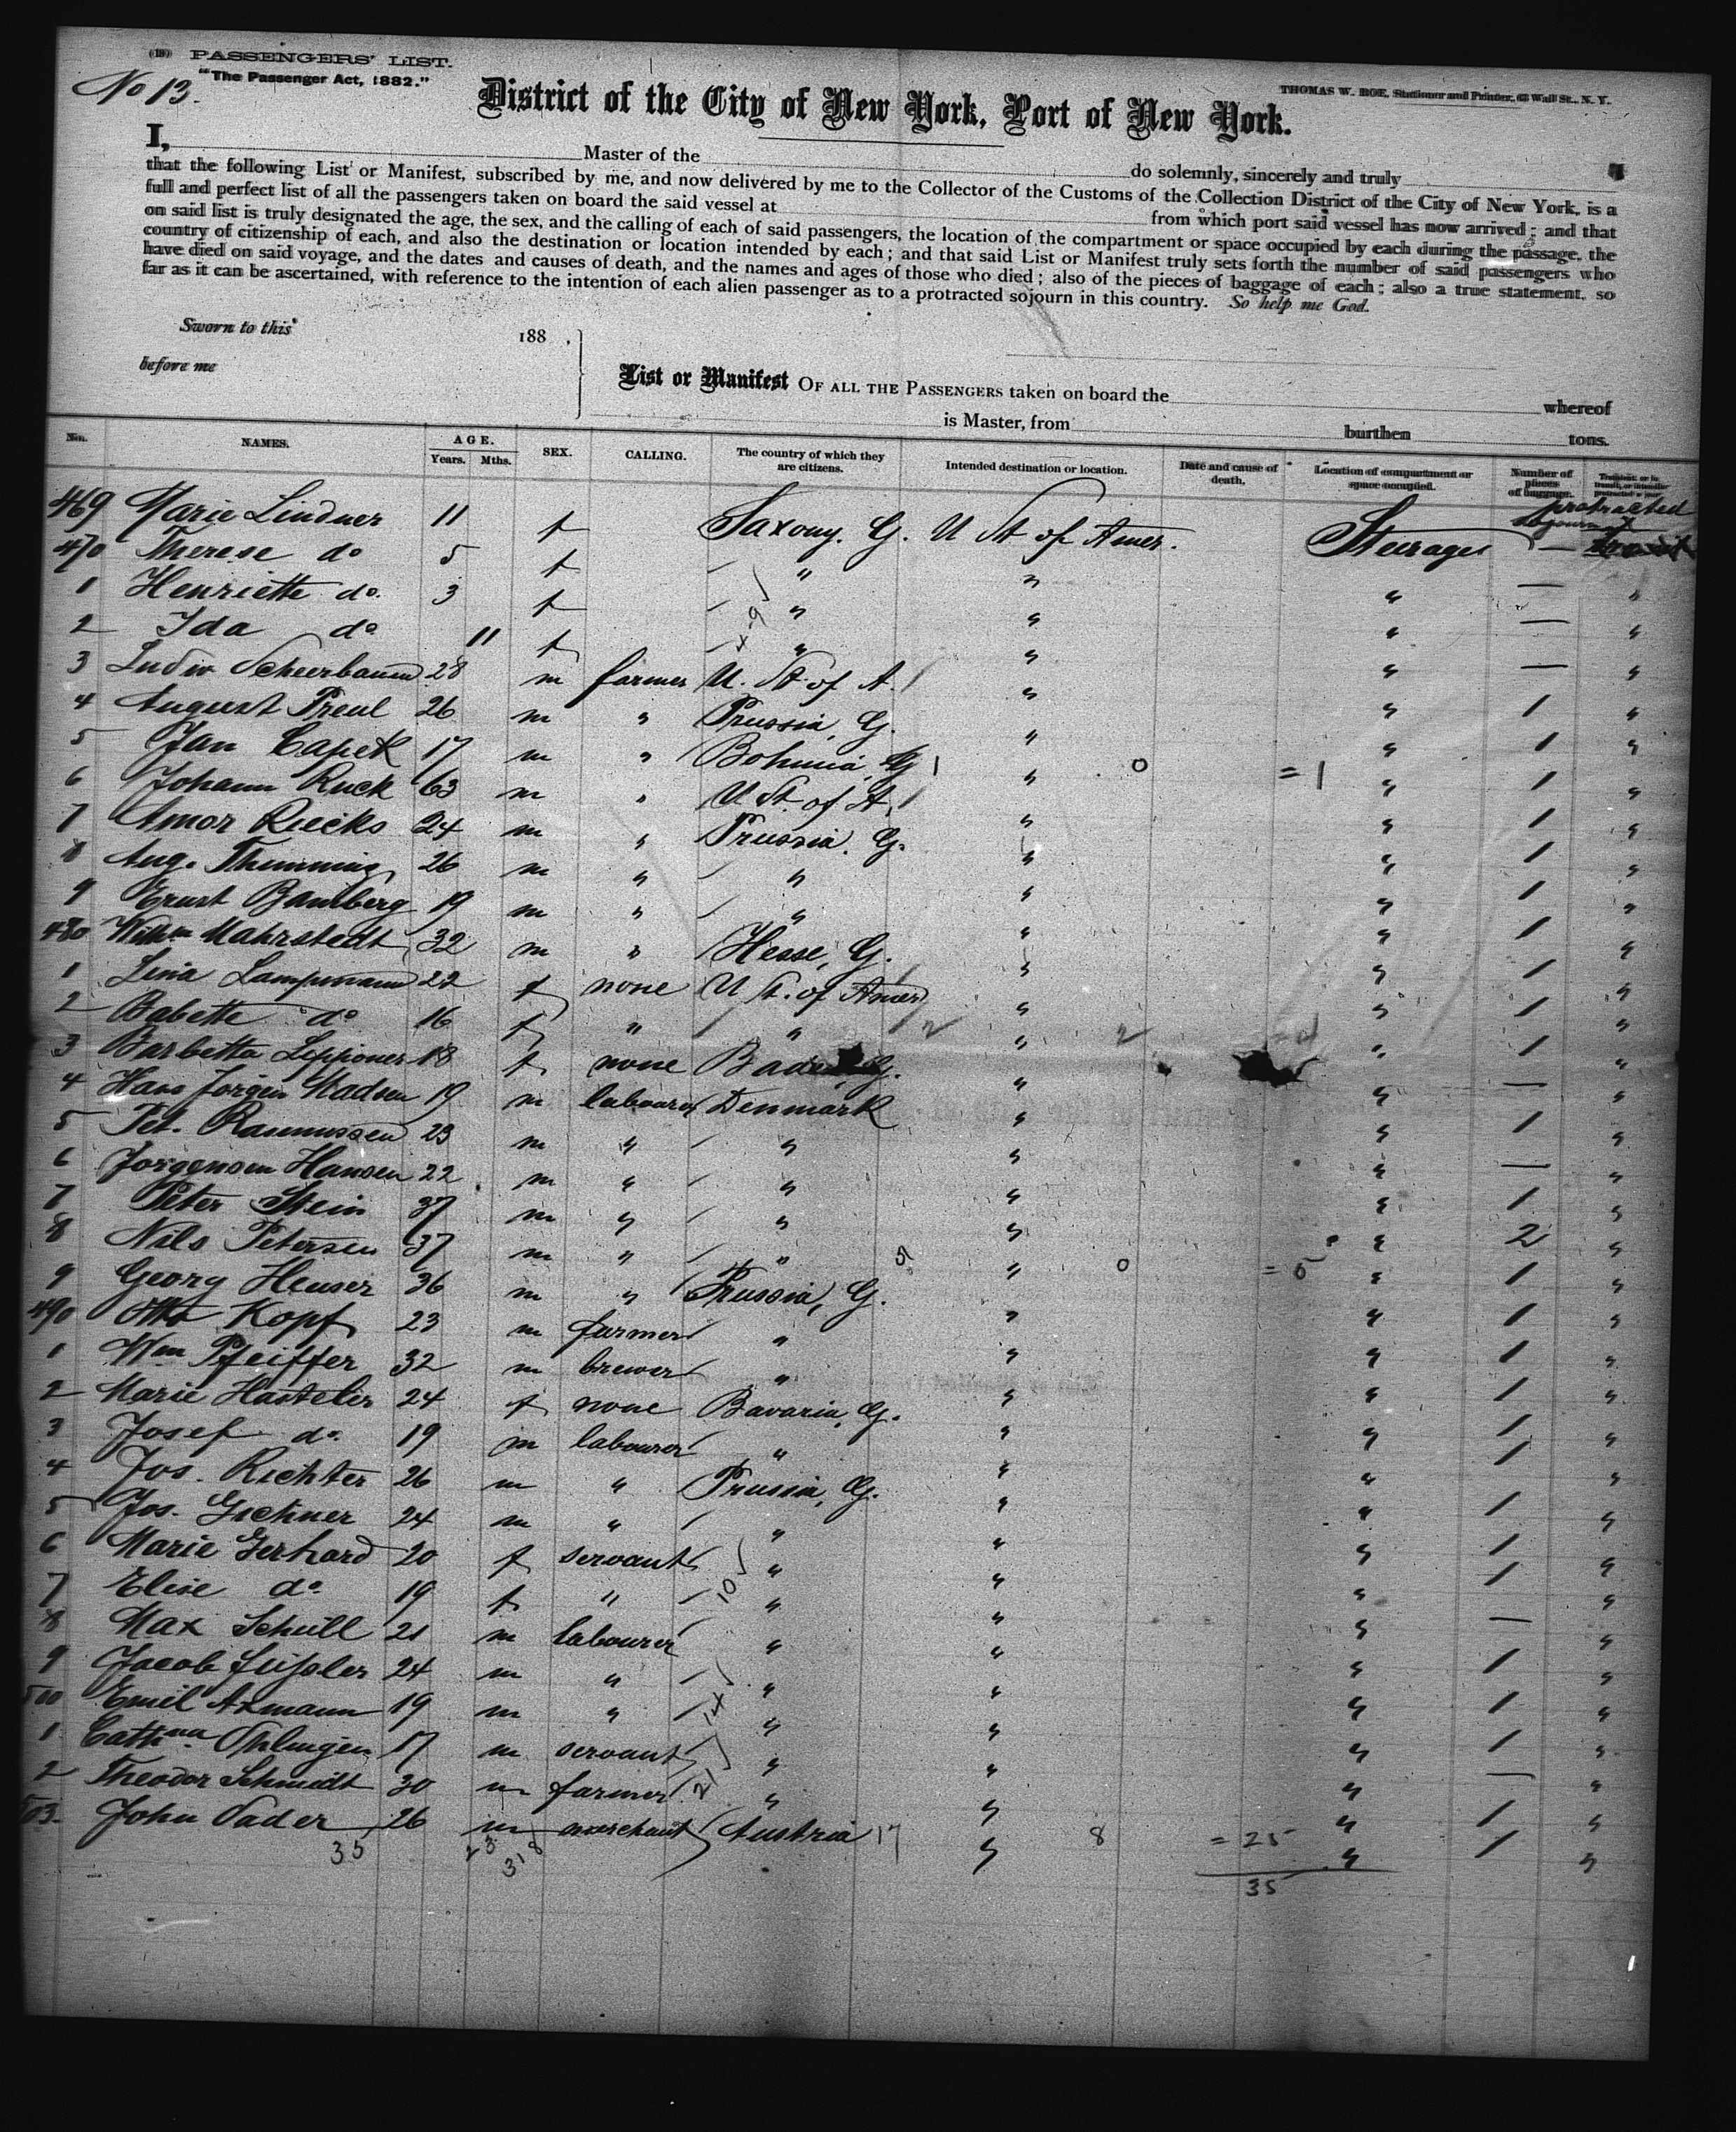 (19) PASSENGERS' LIST.
"The Passenger Act, 1882."
No 13.
THOMAS W. ROE, Stationer and Printer, 63 Wall St., N. Y.
District of the City of New York, Port of New York.
I, Master of the do solemnly, sincerely and truly
that the following List or Manifest, subscribed by me, and now delivered by me to the Collector of the Customs of the Collection District of the City of New York, is a
full and perfect list of all the passengers taken on board the said vessel at from which port said vessel has now arrived; and that
on said list is truly designated the age, the sex, and the calling of each of said passengers, the location of the compartment or space occupied by each during the passage, the
country of citizenship of each, and also the destination or location intended by each; and that said List or Manifest truly sets forth the number of said passengers who
have died on said voyage, and the dates and causes of death, and the names and ages of those who died; also of the pieces of baggage of each; also a true statement, so
far as it can be ascertained, with reference to the intention of each alien passenger as to a protracted sojourn in this country. So help me God.
Sworn to this 188 ,
before me
List or Manifest OF ALL THE PASSENGERS taken on board the whereof
is Master, from burthen tons.
No. NAMES. AGE. Years. Mths. SEX. CALLING. The country of which they are citizens. Intended destination or location. Date and cause of death. Location of compartment or space occupied. Number of pieces of baggage.
protracted sojourn
469 Marie Lindner 11 f Saxony. G. U St of Amer. Steerage —
470 Therese do 5 f " " " — "
1 Henriette do. 3 f " " " — "
2 Ida do 11 f " " " — "
3 Ludw Scheerbaum 28 m farmer U. St of A. " " 1 "
4 August Preul 26 m " Prussia, G. " " 1 "
5 Jan Capek 17 m " Bohmia, G 1 " 0 = 1 " 1 "
6 Johann Ruck 63 m " U St. of A. " " 1 "
7 Amor Rucks 24 m " Prussia. G. " " 1 "
8 Aug. Themming 26 m " " " " 1 "
9 Ernst Bamberg 19 m " " " " 1 "
480 Wilhm Mahrstedt 32 m " Hesse, G. " " 1 "
1 Lina Lampmann 22 f none U St. of Amer. " " 1 "
2 Babette do 16 f " " 2 " 2 = 4 " 1 "
3 Barbetta Leppioner 18 f none Baden, G. " " — "
4 Hans Jorgen Madsen 19 m labourer Denmark " " 1 "
5 Pet. Rasmussen 23 m " " " " — "
6 Jorgensen Hansen 22 m " " " " 1 "
7 Peter Stein 37 m " " " " 2 "
8 Nils Petersen 37 m " " 5 " 0 = 5 " 1 "
9 Georg Heuser 36 m " Prussia, G. " " 1 "
490 Otto Kopf 23 m farmer " " " 1 "
1 Wm Pfeiffer 32 m brewer " " " 1 "
2 Marie Hasteler 24 f none Bavaria, G. " " 1 "
3 Josef do. 19 m labourer " " " 1 "
4 Jos. Richter 26 m " Prussia, G. " " 1 "
5 Jos. Gichner 24 m " " " " 1 "
6 Marie Gerhard 20 f servant " " " 1 "
7 Elise do. 19 f " 10 " " " — "
8 Max Schüll 21 m labourer " " " 1 "
9 Jacob 24 m " " " " 1 "
500 Emil Axmann 19 m " 14 " " " 1 "
1. Cathna Ohlingen 17 m servant " " " — "
2 Theodor Schmidt 30 m farmer 21 " " " 1 "
503. John Vader 26 m merchant Austria 17 " 8 = 25 " 1 "
35 23 318 35